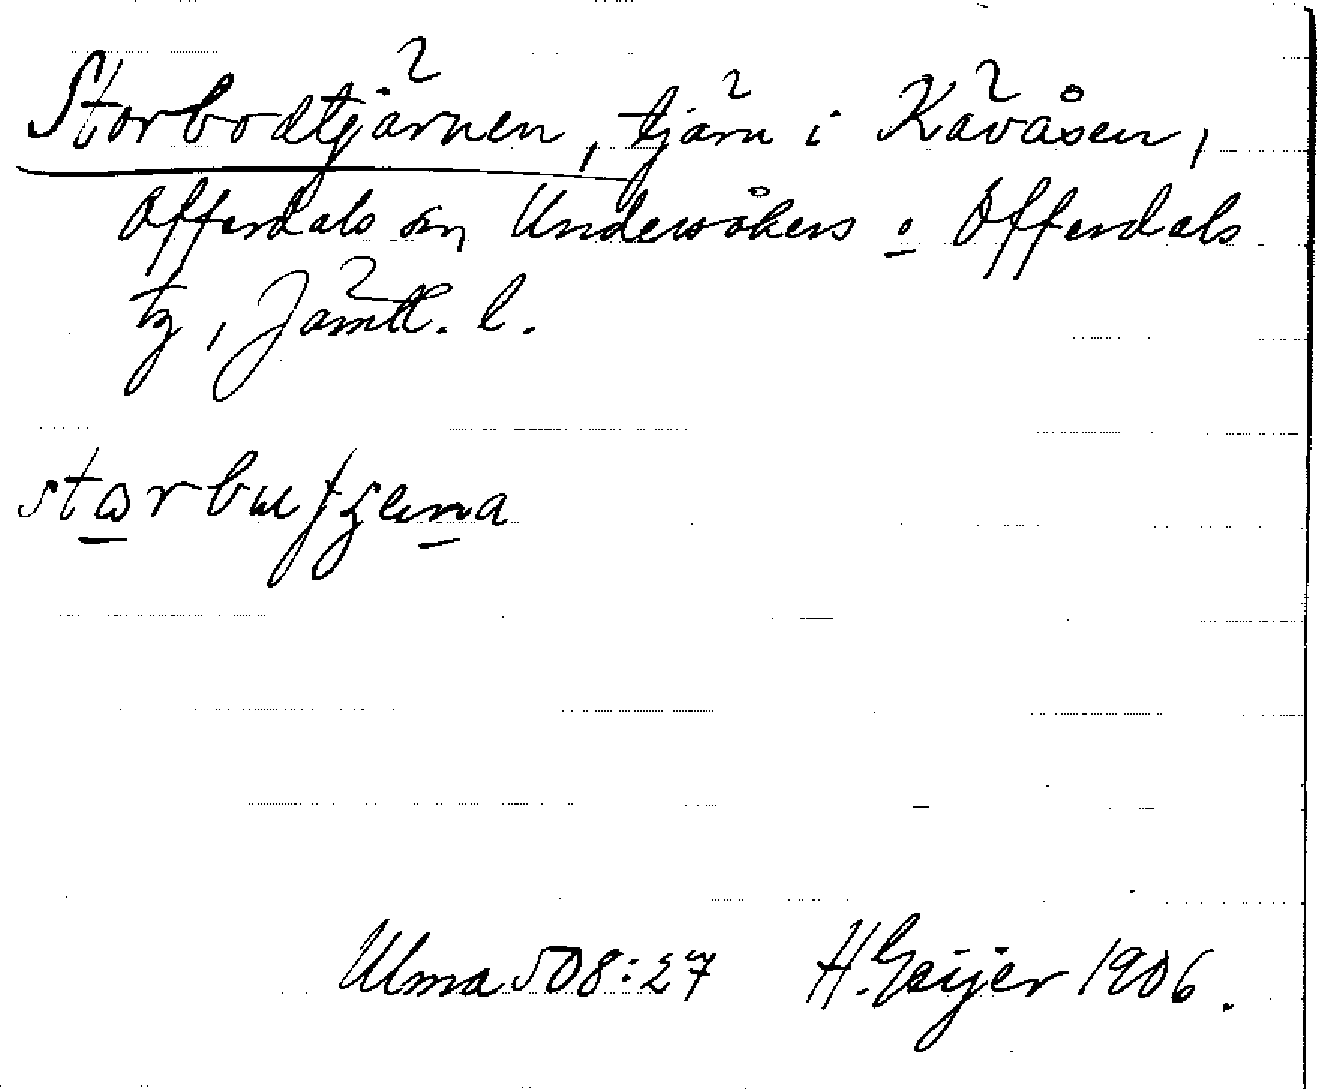 Storbodtjärnen, tjärn i Kävåsen,
Offerdals sn, Undersåkers o Offerdals
tg, Jämtl. l.
Ulma 508:27 H. Geijer 1906.